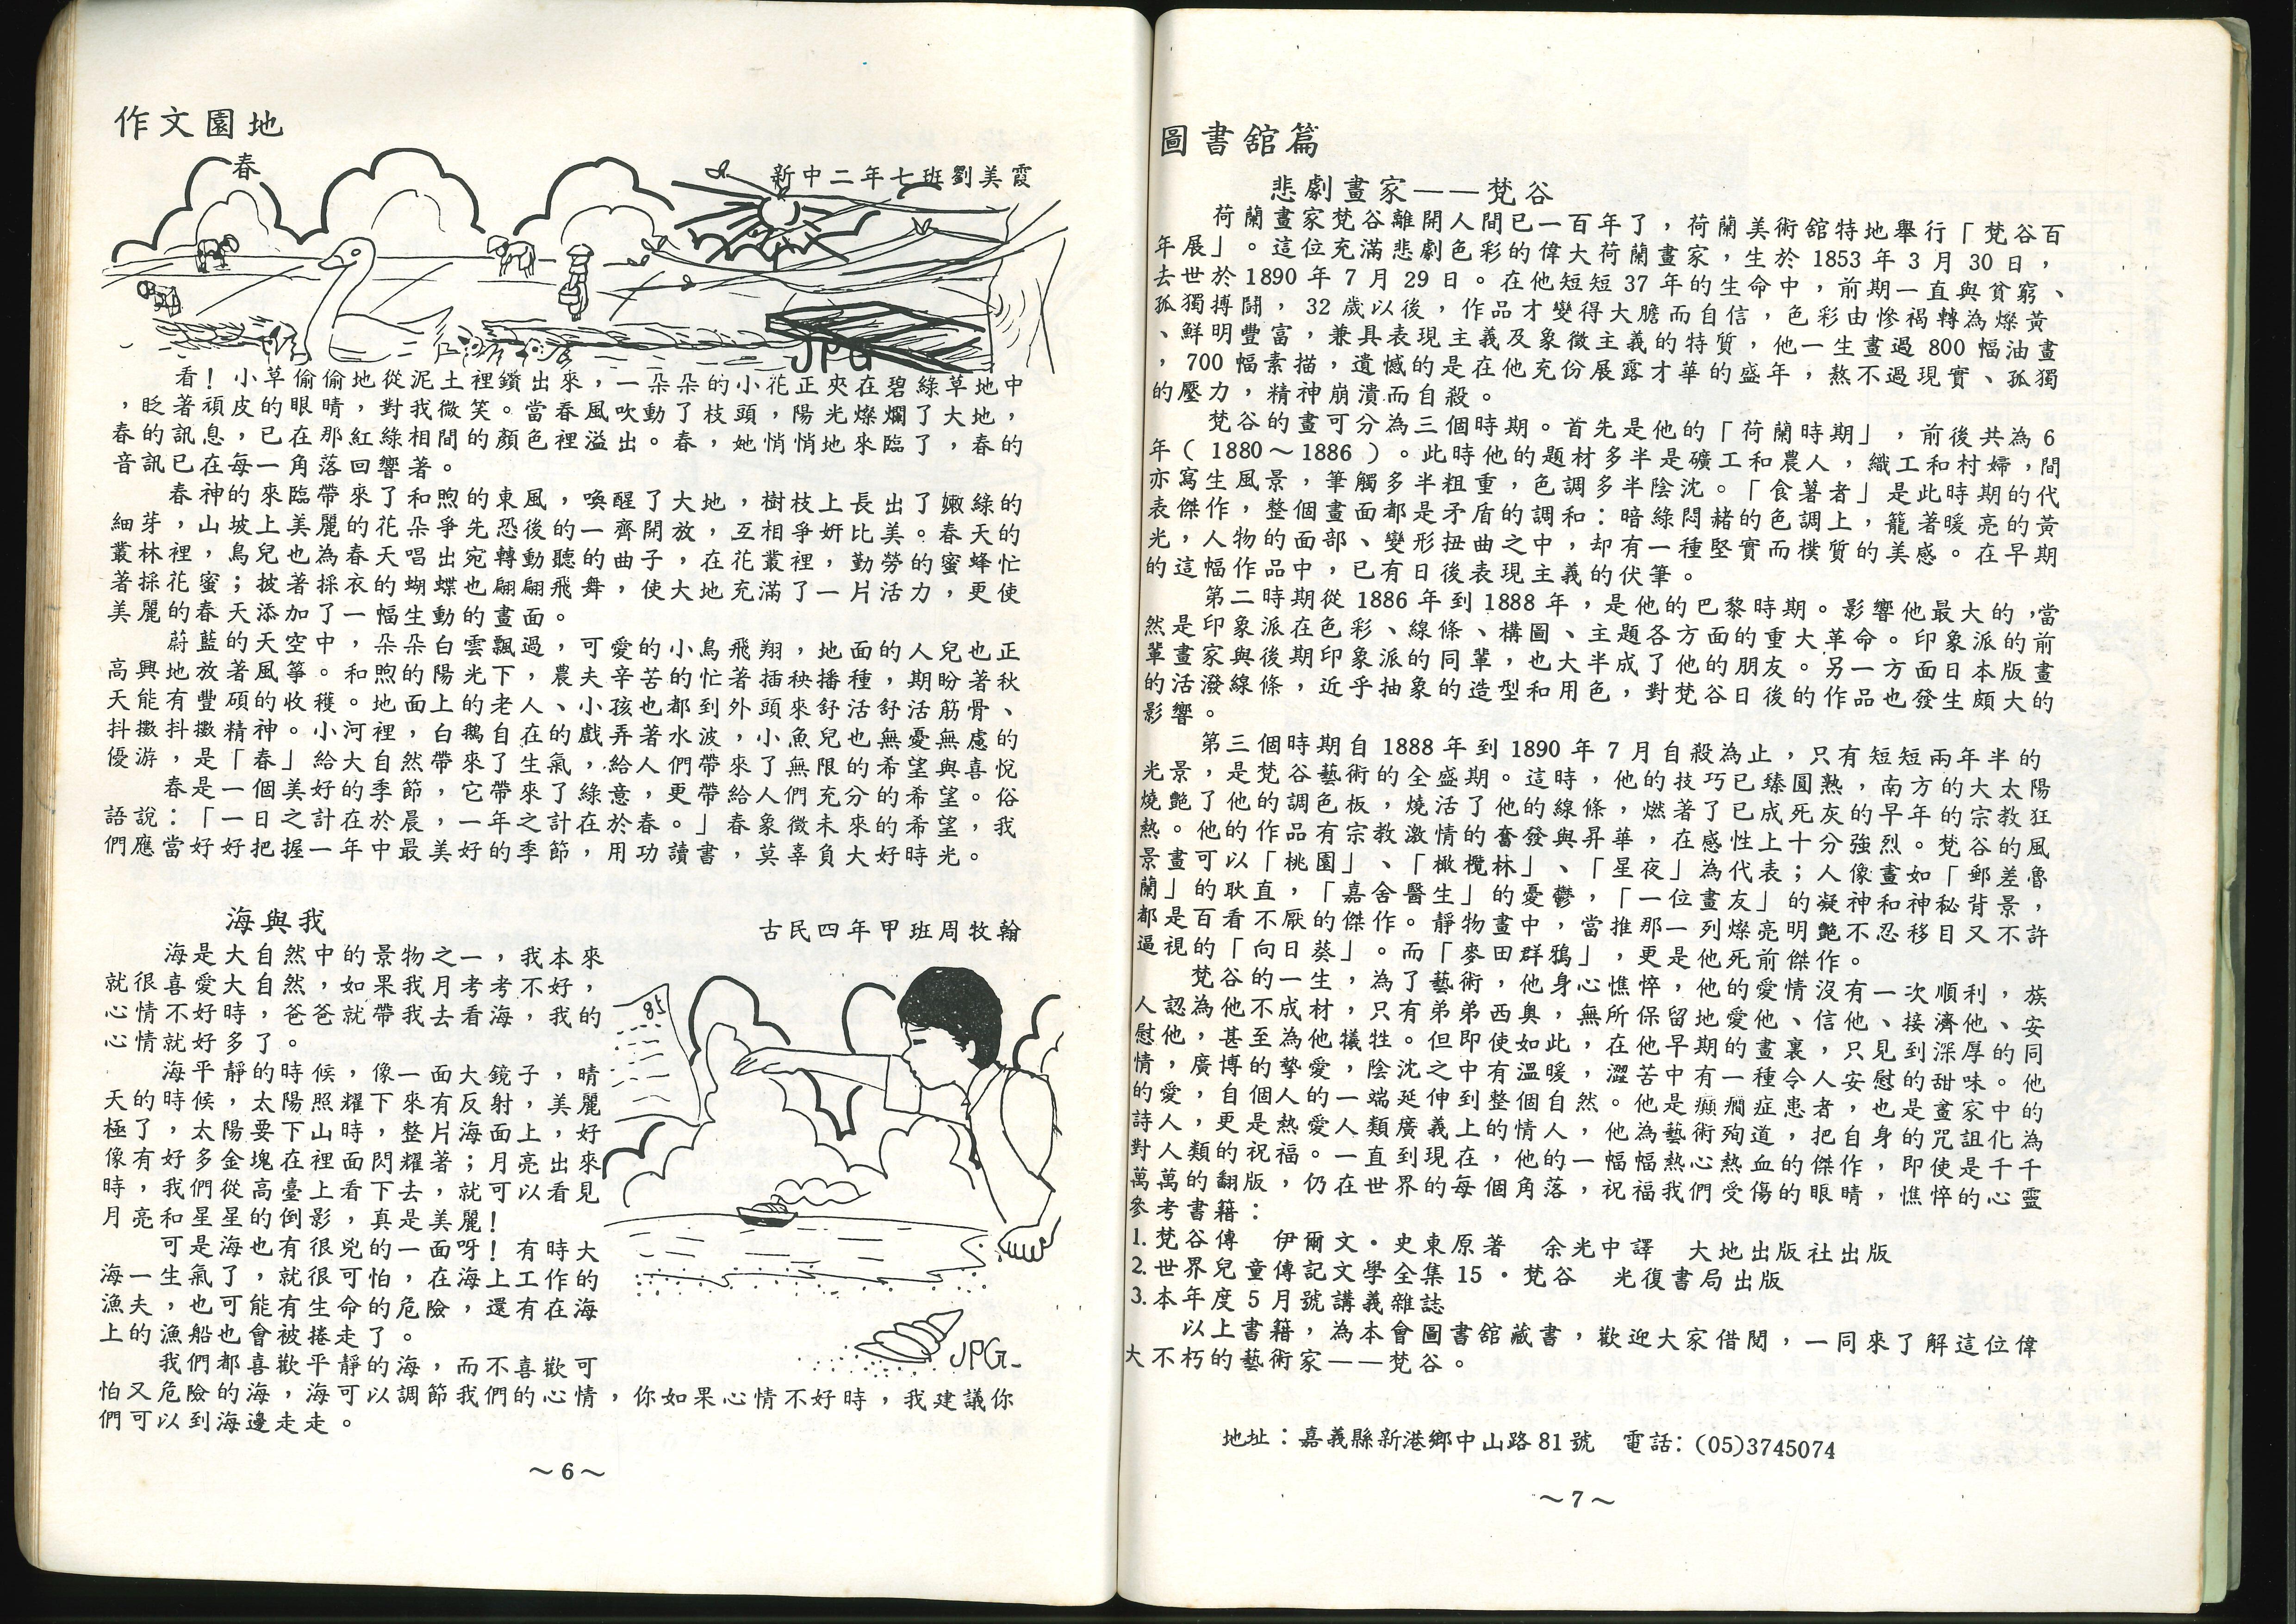 作文園地
春
新中二年七班劉美霞
JPG
看！小草偷偷地從泥土裡鑽出來，一朵朵的小花正夾在碧綠草地中
，眨著頑皮的眼睛，對我微笑。當春風吹動了枝頭，陽光燦爛了大地，
春的訊息，已在那紅綠相間的顏色裡溢出。春，她悄悄地來臨了，春的
音訊已在每一角落回響著。
春神的來臨帶來了和煦的東風，喚醒了大地，樹枝上長出了嫩綠的
細芽，山坡上美麗的花朵爭先恐後的一齊開放，互相爭妍比美。春天的
叢林裡，鳥兒也為春天唱出宛轉動聽的曲子，在花叢裡，勤勞的蜜蜂忙
著採花蜜；披著採衣的蝴蝶也翩翩飛舞，使大地充滿了一片活力，更使
美麗的春天添加了一幅生動的畫面。
蔚藍的天空中，朵朵白雲飄過，可愛的小鳥飛翔，地面的人兒也正
高興地放著風箏。和煦的陽光下，農夫辛苦的忙著插秧播種，期盼著秋
天能有豐碩的收穫。地面上的老人、小孩也都到外頭來舒活舒活筋骨、
抖擻抖擻精神。小河裡，白鵝自在的戲弄著水波，小魚兒也無憂無慮的
優游，是「春」給大自然帶來了生氣，給人們帶來了無限的希望與喜悅
春是一個美好的季節，它帶來了綠意，更帶給人們充分的希望。俗
語說：「一日之計在於晨，一年之計在於春。」春象徵未來的希望，我
們應當好好把握一年中最美好的季節，用功讀書，莫辜負大好時光。
海與我
古民四年甲班周牧翰
海是大自然中的景物之一，我本來
就很喜愛大自然，如果我月考考不好，
心情不好時，爸爸就帶我去看海，我的
心情就好多了。
海平靜的時候，像一面大鏡子，晴
天的時候，太陽照耀下來有反射，美麗
極了，太陽要下山時，整片海面上，好
像有好多金塊在裡面閃耀著；月亮出來
時，我們從高臺上看下去，就可以看見
月亮和星星的倒影，真是美麗！
可是海也有很兇的一面呀！有時大
海一生氣了，就很可怕，在海上工作的
漁夫，也可能有生命的危險，還有在海
上的漁船也會被捲走了。
我們都喜歡平靜的海，而不喜歡可
怕又危險的海，海可以調節我們的心情，你如果心情不好時，我建議你
們可以到海邊走走。
85
JPG
～6～
圖書舘篇
悲劇畫家——梵谷
荷蘭畫家梵谷離開人間已一百年了，荷蘭美術舘特地舉行「梵谷百
年展」。這位充滿悲劇色彩的偉大荷蘭畫家，生於1853年3月30日，
去世於1890年7月29日。在他短短37年的生命中，前期一直與貧窮、
孤獨搏鬪，32歲以後，作品才變得大膽而自信，色彩由慘褐轉為燦黃
、鮮明豐富，兼具表現主義及象徵主義的特質，他一生畫過800幅油畫
，700幅素描，遺憾的是在他充份展露才華的盛年，熬不過現實、孤獨
的壓力，精神崩潰而自殺。
梵谷的畫可分為三個時期。首先是他的「荷蘭時期」，前後共為6
年（1880～1886）。此時他的題材多半是礦工和農人，織工和村婦，間
亦寫生風景，筆觸多半粗重，色調多半陰沈。「食薯者」是此時期的代
表傑作，整個畫面都是矛盾的調和：暗綠悶赭的色調上，籠著暖亮的黃
光，人物的面部、變形扭曲之中，却有一種堅實而樸質的美感。在早期
的這幅作品中，已有日後表現主義的伏筆。
第二時期從1886年到1888年，是他的巴黎時期。影響他最大的，當
然是印象派在色彩、線條、構圖、主題各方面的重大革命。印象派的前
輩畫家與後期印象派的同輩，也大半成了他的朋友。另一方面日本版畫
的活潑線條，近乎抽象的造型和用色，對梵谷日後的作品也發生頗大的
影響。
第三個時期自1888年到1890年7月自殺為止，只有短短兩年半的
光景，是梵谷藝術的全盛期。這時，他的技巧已臻圓熟，南方的大太陽
燒艷了他的調色板，燒活了他的線條，燃著了已成死灰的早年的宗教狂
熱。他的作品有宗教激情的奮發與昇華，在感性上十分強烈。梵谷的風
景畫可以「桃園」、「橄欖林」、「星夜」為代表；人像畫如「郵差魯
蘭」的耿直，「嘉舍醫生」的憂鬱，「一位畫友」的凝神和神秘背景，
都是百看不厭的傑作。靜物畫中，當推那一列燦亮明艷不忍移目又不許
逼視的「向日葵」。而「麥田群鴉」，更是他死前傑作。
梵谷的一生，為了藝術，他身心憔悴，他的愛情沒有一次順利，族
人認為他不成材，只有弟弟西奧，無所保留地愛他、信他、接濟他、安
慰他，甚至為他犧牲。但即使如此，在他早期的畫裏，只見到深厚的同
情，廣博的摯愛，陰沈之中有溫暖，澀苦中有一種令人安慰的甜味。他
的愛，自個人的一端延伸到整個自然。他是癲癇症患者，也是畫家中的
詩人，更是熱愛人類廣義上的情人，他為藝術殉道，把自身的咒詛化為
對人類的祝福。一直到現在，他的一幅幅熱心熱血的傑作，即使是千千
萬萬的翻版，仍在世界的每個角落，祝福我們受傷的眼睛，憔悴的心靈
參考書籍：
1.梵谷傳　伊爾文・史東原著　余光中譯　大地出版社出版
2.世界兒童傳記文學全集15・梵谷　光復書局出版
3.本年度5月號講義雜誌
以上書籍，為本會圖書舘藏書，歡迎大家借閱，一同來了解這位偉
大不朽的藝術家——梵谷。
地址：嘉義縣新港鄉中山路81號　電話：(05)3745074
～7～